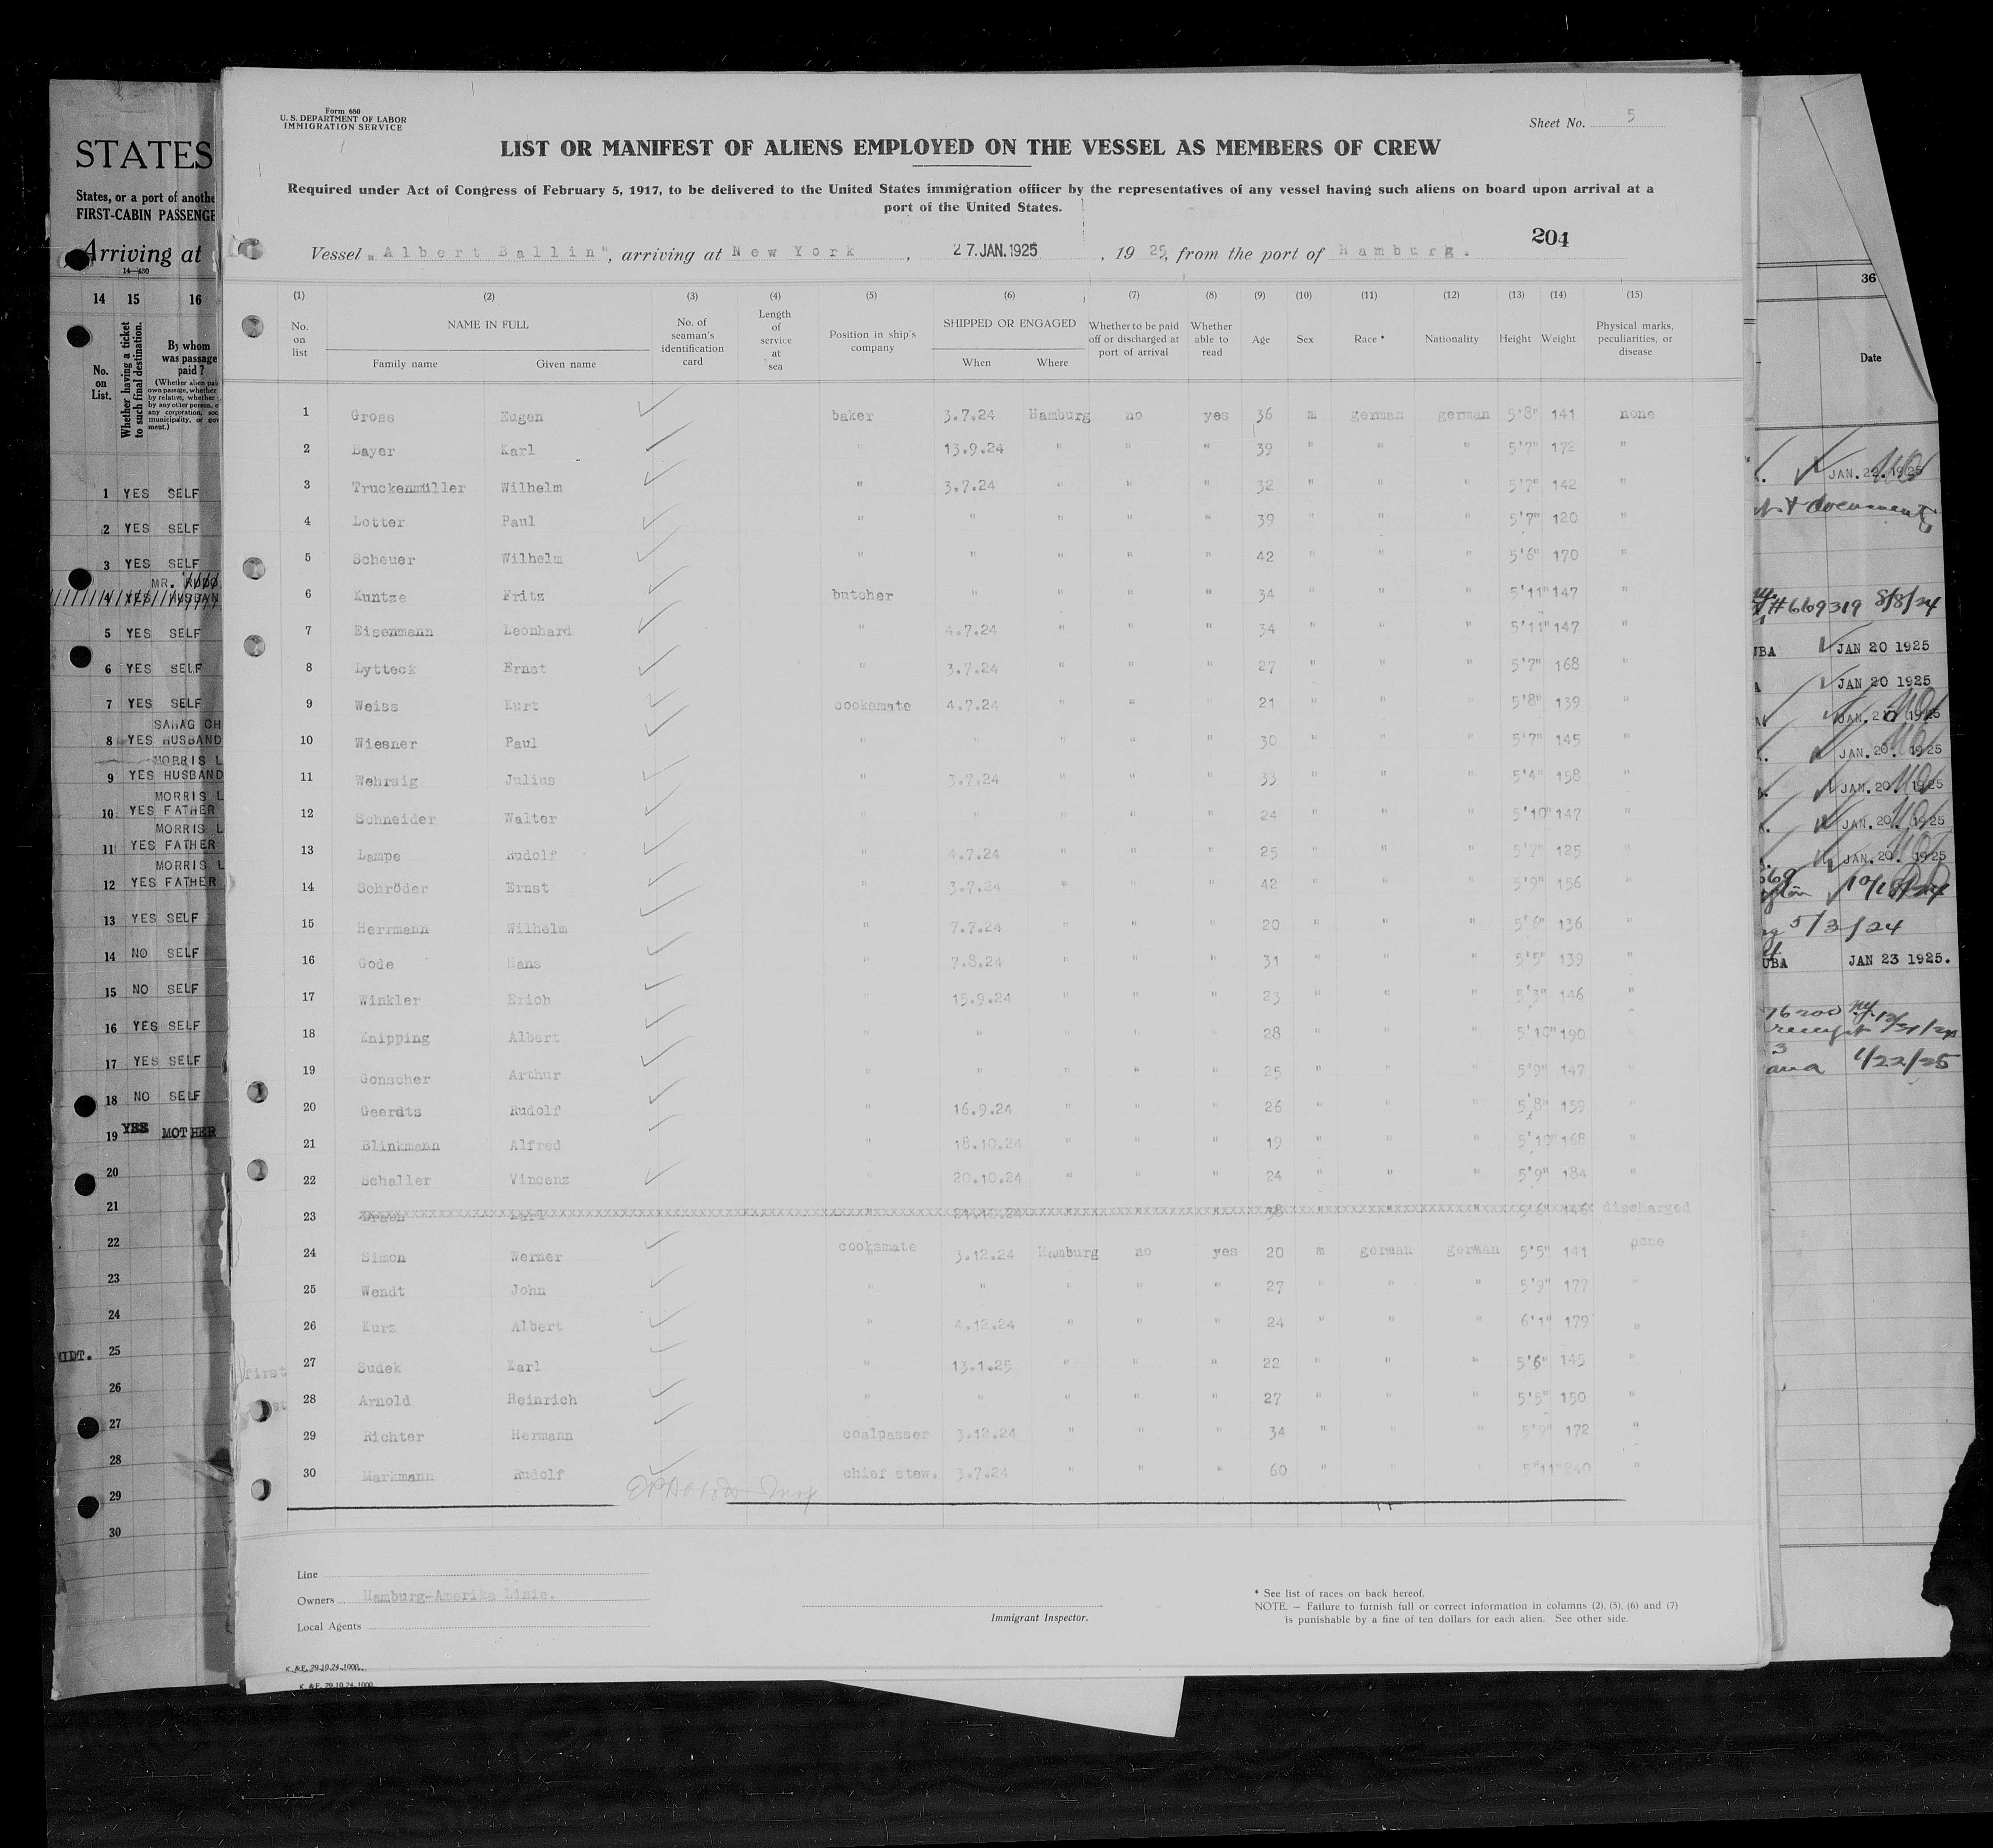 Form 680
U. S. DEPARTMENT OF LABOR
IMMIGRATION SERVICE
Sheet No. 5
LIST OR MANIFEST OF ALIENS EMPLOYED ON THE VESSEL AS MEMBERS OF CREW
Required under Act of Congress of February 5, 1917, to be delivered to the United States immigration officer by the representatives of any vessel having such aliens on board upon arrival at a
port of the United States.
204
Vessel „Albert Ballin", arriving at New York, 27.JAN.1925, 1925, from the port of Hamburg.
(1) (2) (3) (4) (5) (6) (7) (8) (9) (10) (11) (12) (13) (14) (15)
No. on list NAME IN FULL Family name Given name No. of seaman's identification card Length of service at sea Position in ship's company SHIPPED OR ENGAGED When Where Whether to be paid off or discharged at port of arrival Whether able to read Age Sex Race * Nationality Height Weight Physical marks, peculiarities, or disease
1 Gross Eugen baker 3.7.24 Hamburg no yes 36 m german german 5'8" 141 none
2 Bayer Karl " 13.9.24 " " " 39 " " " 5'7" 172 "
3 Truckenmüller Wilhelm " 3.7.24 " " " 32 " " " 5'7" 142 "
4 Lotter Paul " " " " " 39 " " " 5'7" 120 "
5 Scheuer Wilhelm " " " " " 42 " " " 5'6" 170 "
6 Kuntze Fritz butcher " " " " 34 " " " 5'11" 147 "
7 Eisenmann Leonhard " 4.7.24 " " " 34 " " " 5'11" 147 "
8 Lytteck Ernst " 3.7.24 " " " 27 " " " 5'7" 168 "
9 Weiss Kurt cooksmate 4.7.24 " " " 21 " " " 5'8" 139 "
10 Wiesner Paul " " " " " 30 " " " 5'7" 145 "
11 Wehrsig Julius " 3.7.24 " " " 33 " " " 5'4" 158 "
12 Schneider Walter " " " " " 24 " " " 5'10" 147 "
13 Lampe Rudolf " 4.7.24 " " " 25 " " " 5'7" 125 "
14 Schröder Ernst " 3.7.24 " " " 42 " " " 5'9" 156 "
15 Herrmann Wilhelm " 7.7.24 " " " 20 " " " 5'6" 136 "
16 Gode Hans " 7.8.24 " " " 31 " " " 5'5" 139 "
17 Winkler Erich " 15.9.24 " " " 23 " " " 5'3" 146 "
18 Knipping Albert " " " " " 28 " " " 5'10" 190 "
19 Gonscher Arthur " " " " " 25 " " " 5'9" 147 "
20 Geerdts Rudolf " 16.9.24 " " " 26 " " " 5'8" 159 "
21 Blinkmann Alfred " 18.10.24 " " " 19 " " " 5'10" 168 "
22 Schaller Vincenz " 20.10.24 " " " 24 " " " 5'9" 184 "
23 Karl " " " " 38 " " " 5'6" 146 discharged
24 Simon Werner cooksmate 3.12.24 Hamburg no yes 20 m german german 5'5" 141 none
25 Wendt John " " " " " 27 " " " 5'9" 177 "
26 Kurz Albert " 4.12.24 " " " 24 " " " 6'1" 179 "
27 Sudek Karl " 13.1.25 " " " 22 " " " 5'6" 145 "
first
28 Arnold Heinrich " " " " " 27 " " " 5'5" 150 "
29 Richter Hermann coalpasser 3.12.24 " " " 34 " " " 5'9" 172 "
30 Markmann Rudolf chief stew. 3.7.24 " " " 60 " " " 5'11" 240 "
Line
Owners Hamburg-Amerika Linie.
Local Agents
Immigrant Inspector.
* See list of races on back hereof.
NOTE. — Failure to furnish full or correct information in columns (2), (5), (6) and (7)
is punishable by a fine of ten dollars for each alien. See other side.
K. & E. 29.10.24.1000.
K. & E. 29.10.24.1000
STATES
States, or a port of anothe
FIRST-CABIN PASSENGE
Arriving at
14—430
14 15 16
No. on List. Whether having a ticket to such final destination. By whom was passage paid?
1 YES SELF
2 YES SELF
3 YES SELF
MR. RUDO
4 YES HUSBAN
5 YES SELF
6 YES SELF
7 YES SELF
SAHAG CH
8 YES HUSBAND
MORRIS L
9 YES HUSBAND
MORRIS L
10 YES FATHER
MORRIS L
11 YES FATHER
MORRIS L
12 YES FATHER
13 YES SELF
14 NO SELF
15 NO SELF
16 YES SELF
17 YES SELF
18 NO SELF
19 YES MOTHER
20
21
22
23
24
25
26
27
28
29
30
MIDT.
36
Date
JAN. 22. 1925
documents
#669319 8/8/24
UBA JAN 20 1925
JAN 20 1925
JAN. 20. 1925
JAN. 20. 1925
JAN. 20. 1925
JAN. 20. 1925
5/3/24
UBA JAN 23 1925.
76200
receipt
ana 1/22/25